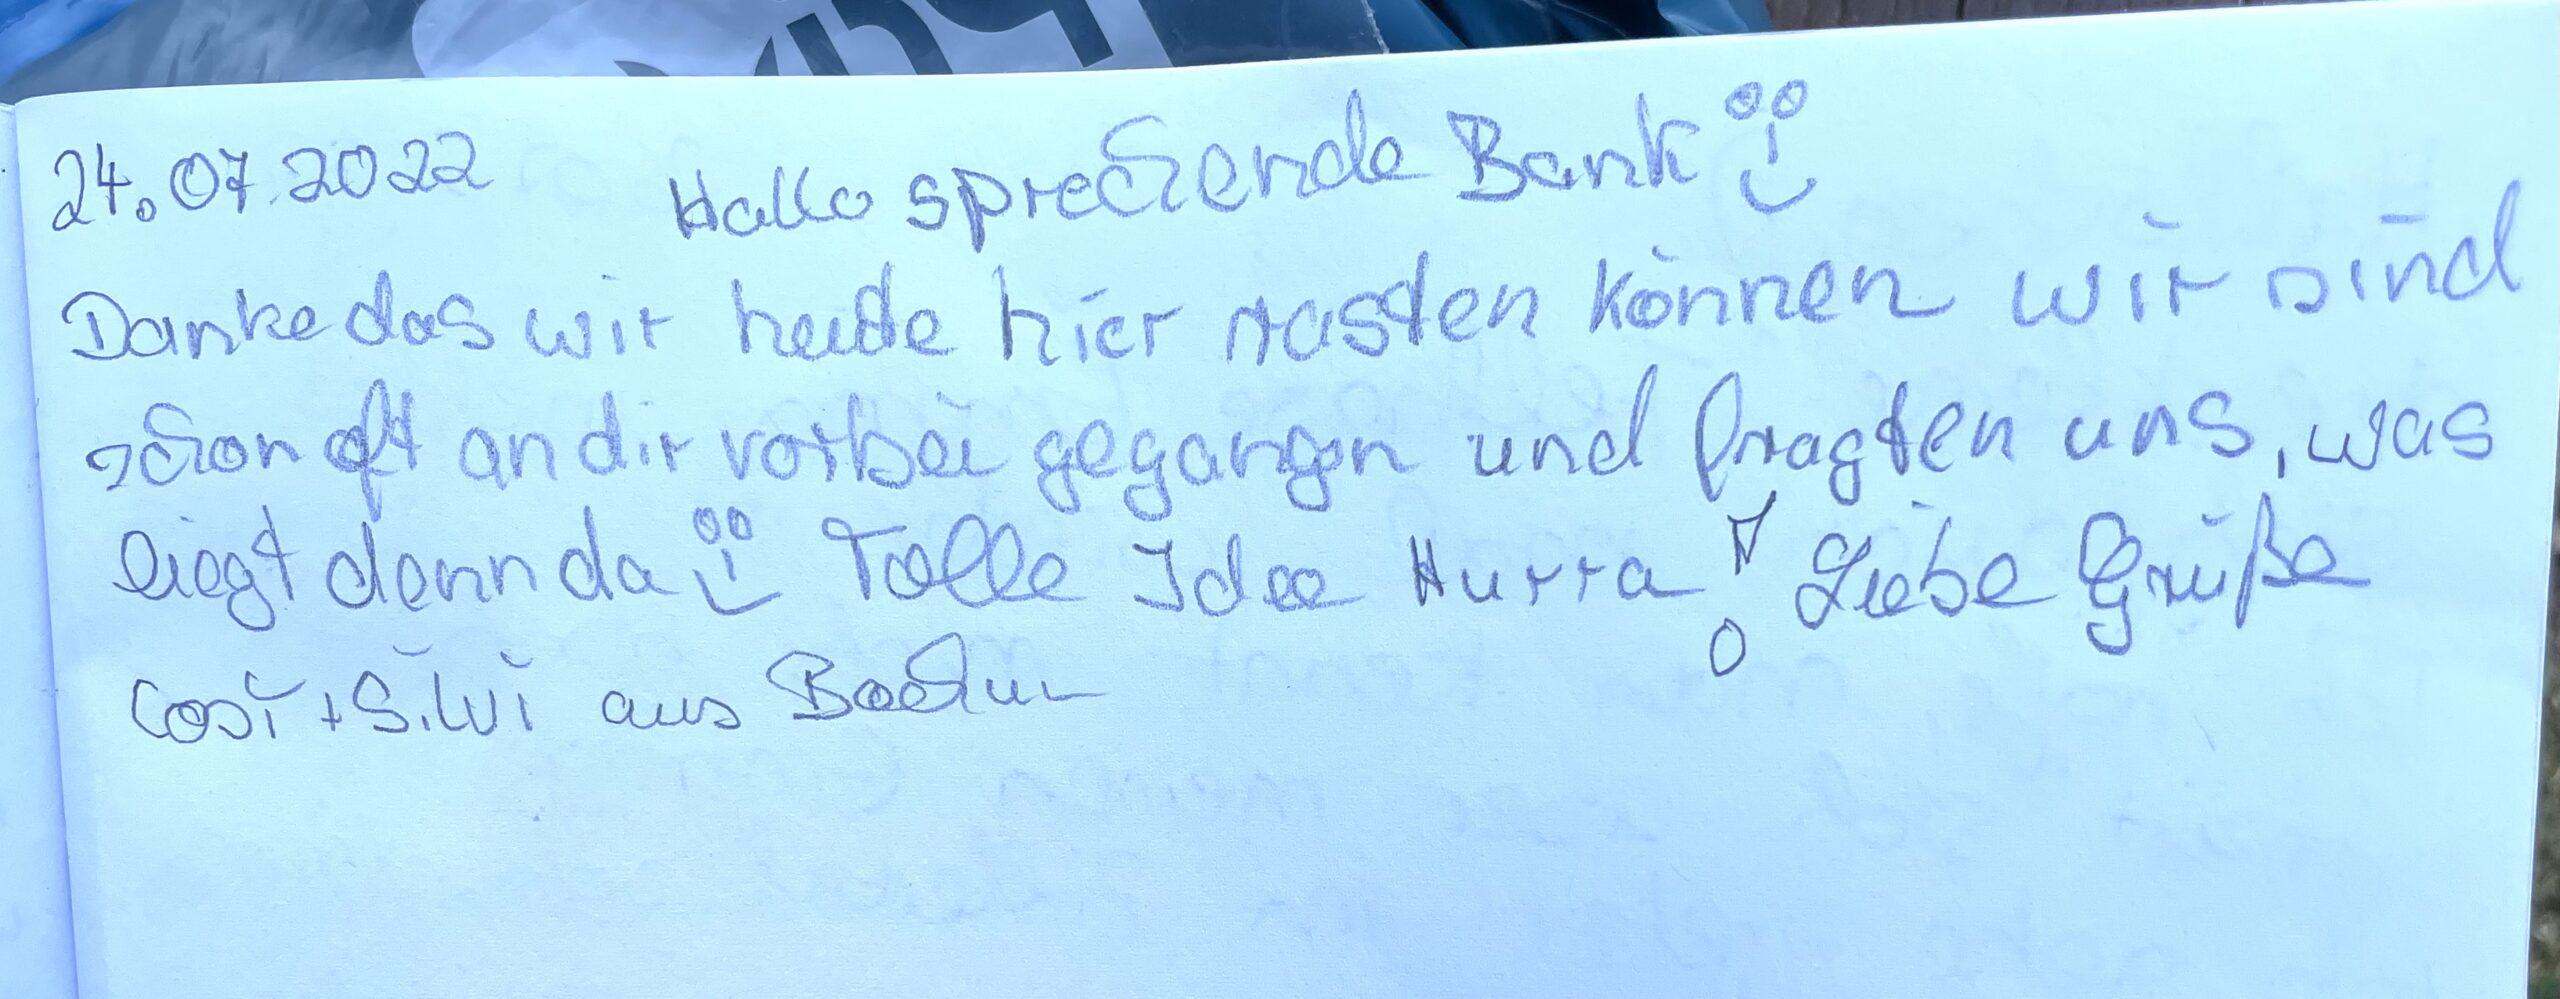 24.07.2022 Hallo sprechende Bank
Danke das wir heute hier rasten können wir sind
schon oft an dir vorbei gegangen und fragten uns, was
liegt denn da Tolle Idee Hurra! Liebe Grüße
Cosi + Silvi aus Bochum